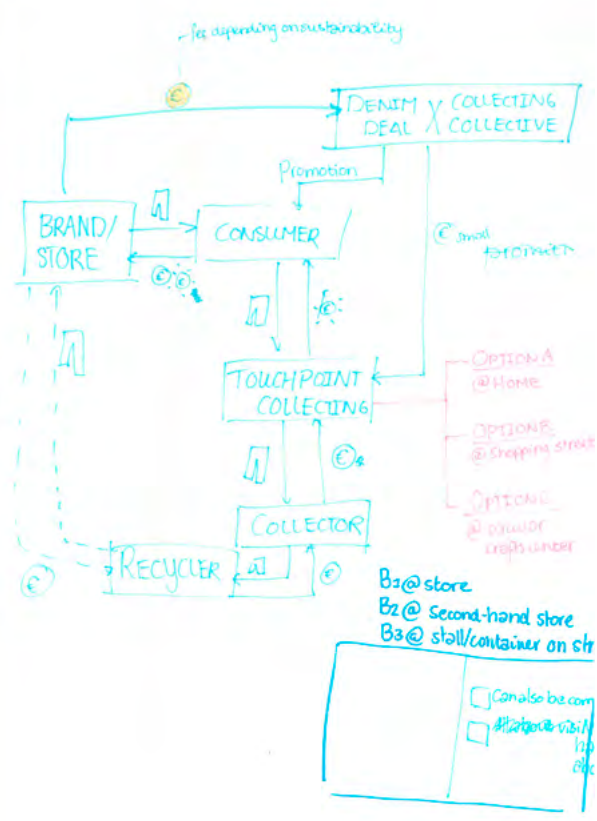 - fee depending on sustainability
€
DENIM X COLLECTING
DEAL COLLECTIVE
Promotion
BRAND/
STORE
CONSUMER
€ small
€
€
€
TOUCHPOINT
COLLECTING
OPTION A
@ Home
OPTION B
@ Shopping street
€
OPTION C
@
COLLECTOR
RECYCLER
€
€
B1@ store
B2@ second-hand store
B3@ stall/container on
Can also be